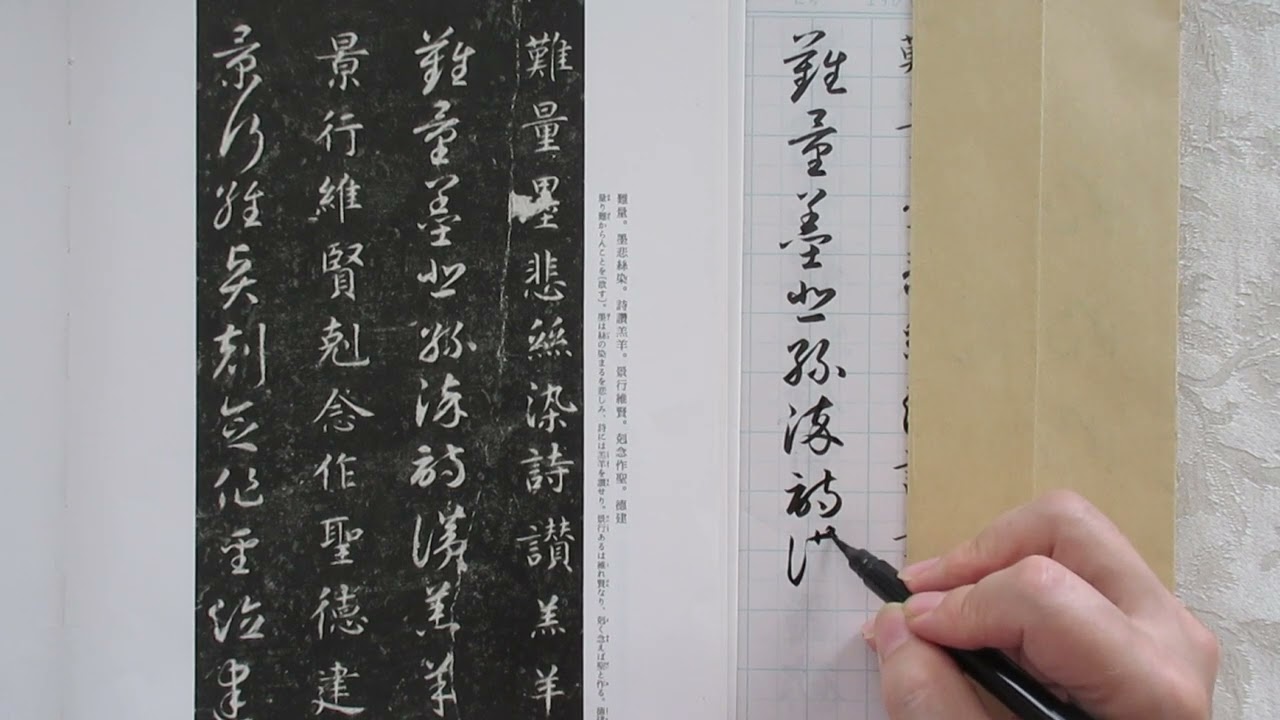 難量墨悲絲染詩
難量。墨悲絲染。詩讚羔羊。景行維賢。剋念作聖。德建
量り難からんことを〔欲す〕。墨は絲の染まるを悲しみ、詩には羔羊を讚せり。景行あるは維れ賢なり、剋く念えば聖と作る。德建
難量墨悲絲染詩讚羔羊
難量墨悲絲染詩讚羔羊
景行維賢剋念作聖德建
景行維賢剋念作聖德建